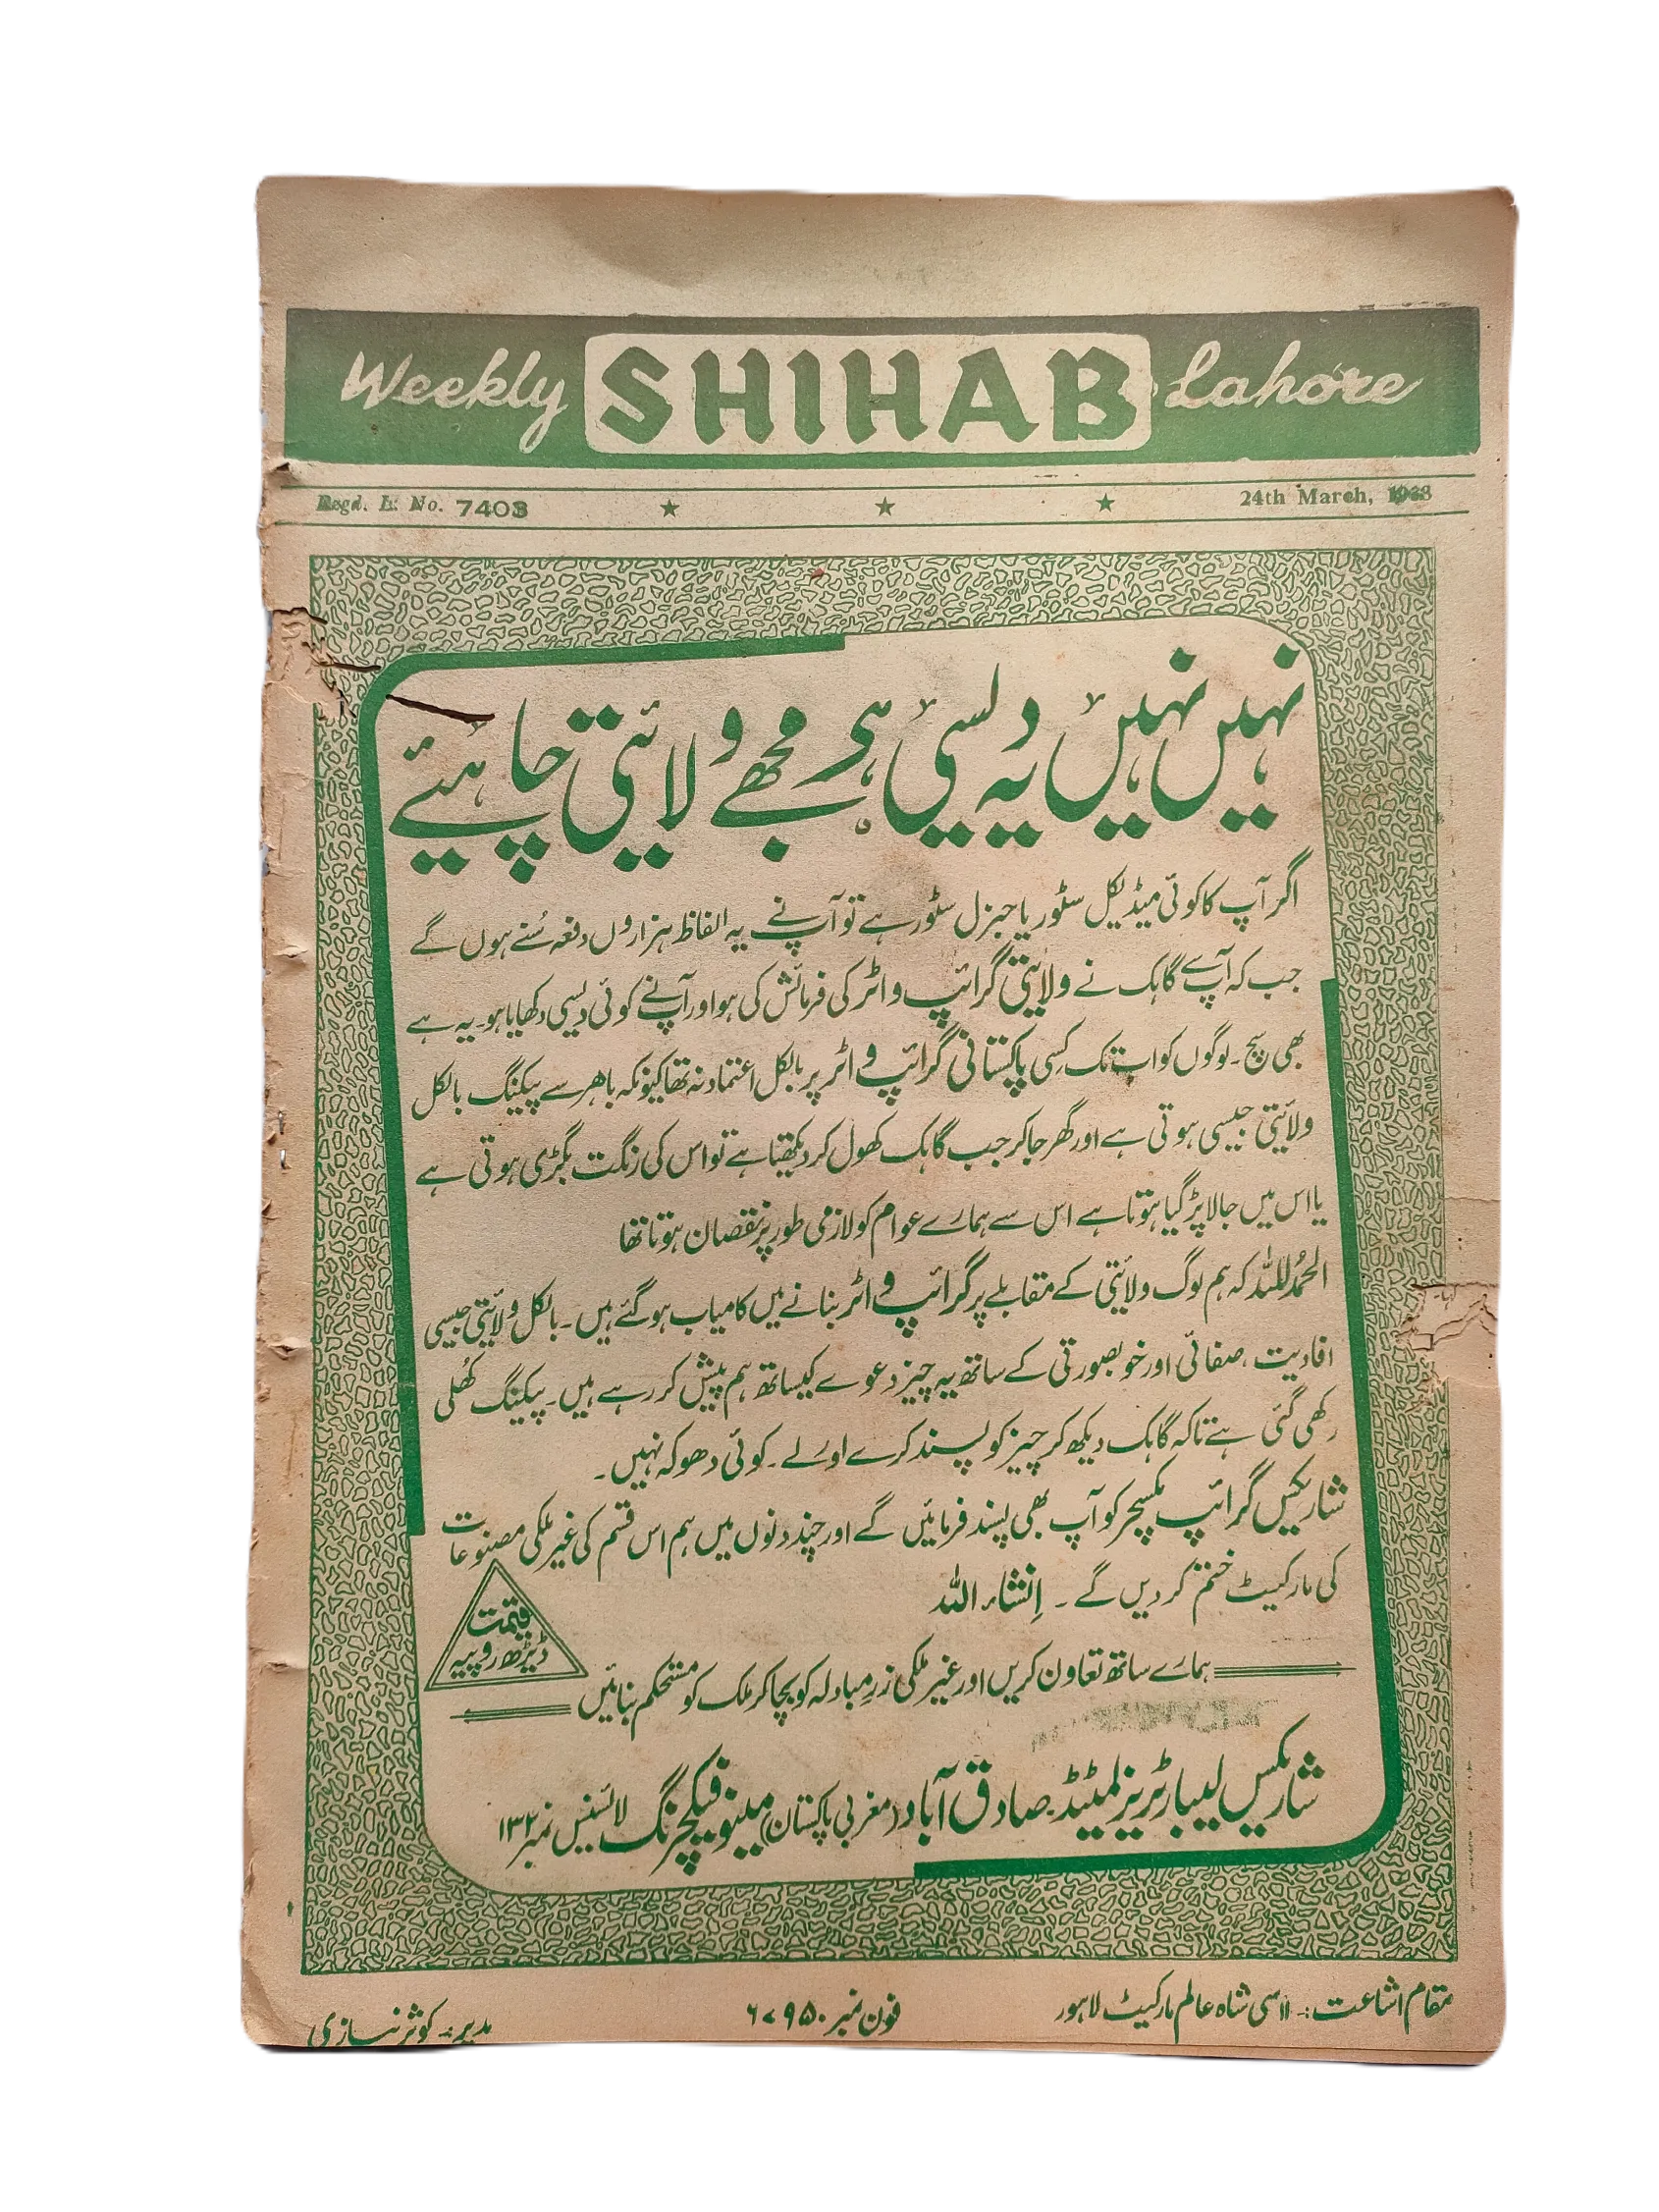 Weekly SHIHAB Lahore
Regd. L. No. 7403
24th March, 1963
نہیں نہیں یہ دیسی ہے مجھے ولائیتی چاہیئے
اگر آپ کا کوئی میڈیکل سٹور یا جنرل سٹور ہے تو آپ نے یہ الفاظ ہزاروں دفعہ سُنے ہوں گے
جب کہ آپ سے گاہک نے ولائیتی گرائپ واٹر کی فرمائش کی ہو اور آپ نے کوئی دیسی دکھایا ہو۔ یہ ہے
بھی سچ۔ لوگوں کو اب تک کسی پاکستانی گرائپ واٹر پر بالکل اعتماد نہ تھا کیونکہ باھر سے پیکنگ بالکل
ولائیتی جیسی ہوتی ہے اور گھر جا کر جب گاہک کھول کر دیکھتا ہے تو اس کی رنگت بگڑی ہوتی ہے
یا اس میں جالا پڑ گیا ہوتا ہے اس سے ہمارے عوام کو لازمی طور پر نقصان ہوتا تھا
الحمدُ للہ کہ ہم لوگ ولائیتی کے مقابلے پر گرائپ واٹر بنانے میں کامیاب ہو گئے ہیں۔ بالکل ولائیتی جیسی
افادیت، صفائی اور خوبصورتی کے ساتھ یہ چیز دعوے کیساتھ ہم پیش کر رہے ہیں۔ پیکنگ کھُلی
رکھی گئی ہے تاکہ گاہک دیکھ کر چیز کو پسند کرے اور لے۔ کوئی دھوکہ نہیں۔
شاریکس گرائپ مکسچر کو آپ بھی پسند فرمائیں گے اور چند دنوں میں ہم اس قسم کی غیر ملکی مصنوعات
کی مارکیٹ ختم کر دیں گے۔ اِنشاء اللہ
قیمت
ڈیڑھ روپیہ
ہمارے ساتھ تعاون کریں اور غیر ملکی زرِ مبادلہ کو بچا کر ملک کو مستحکم بنائیں
شاریکس لیبارٹریز لمٹیڈ۔ صادق آباد (مغربی پاکستان) مینوفیکچرنگ لائسنس نمبر ۱۳۲
مقام اشاعت:۔ ۱۱ سی شاہ عالم مارکیٹ لاہور
فون نمبر ۶۷۹۵۰
مدیر:۔ کوثر نیازی